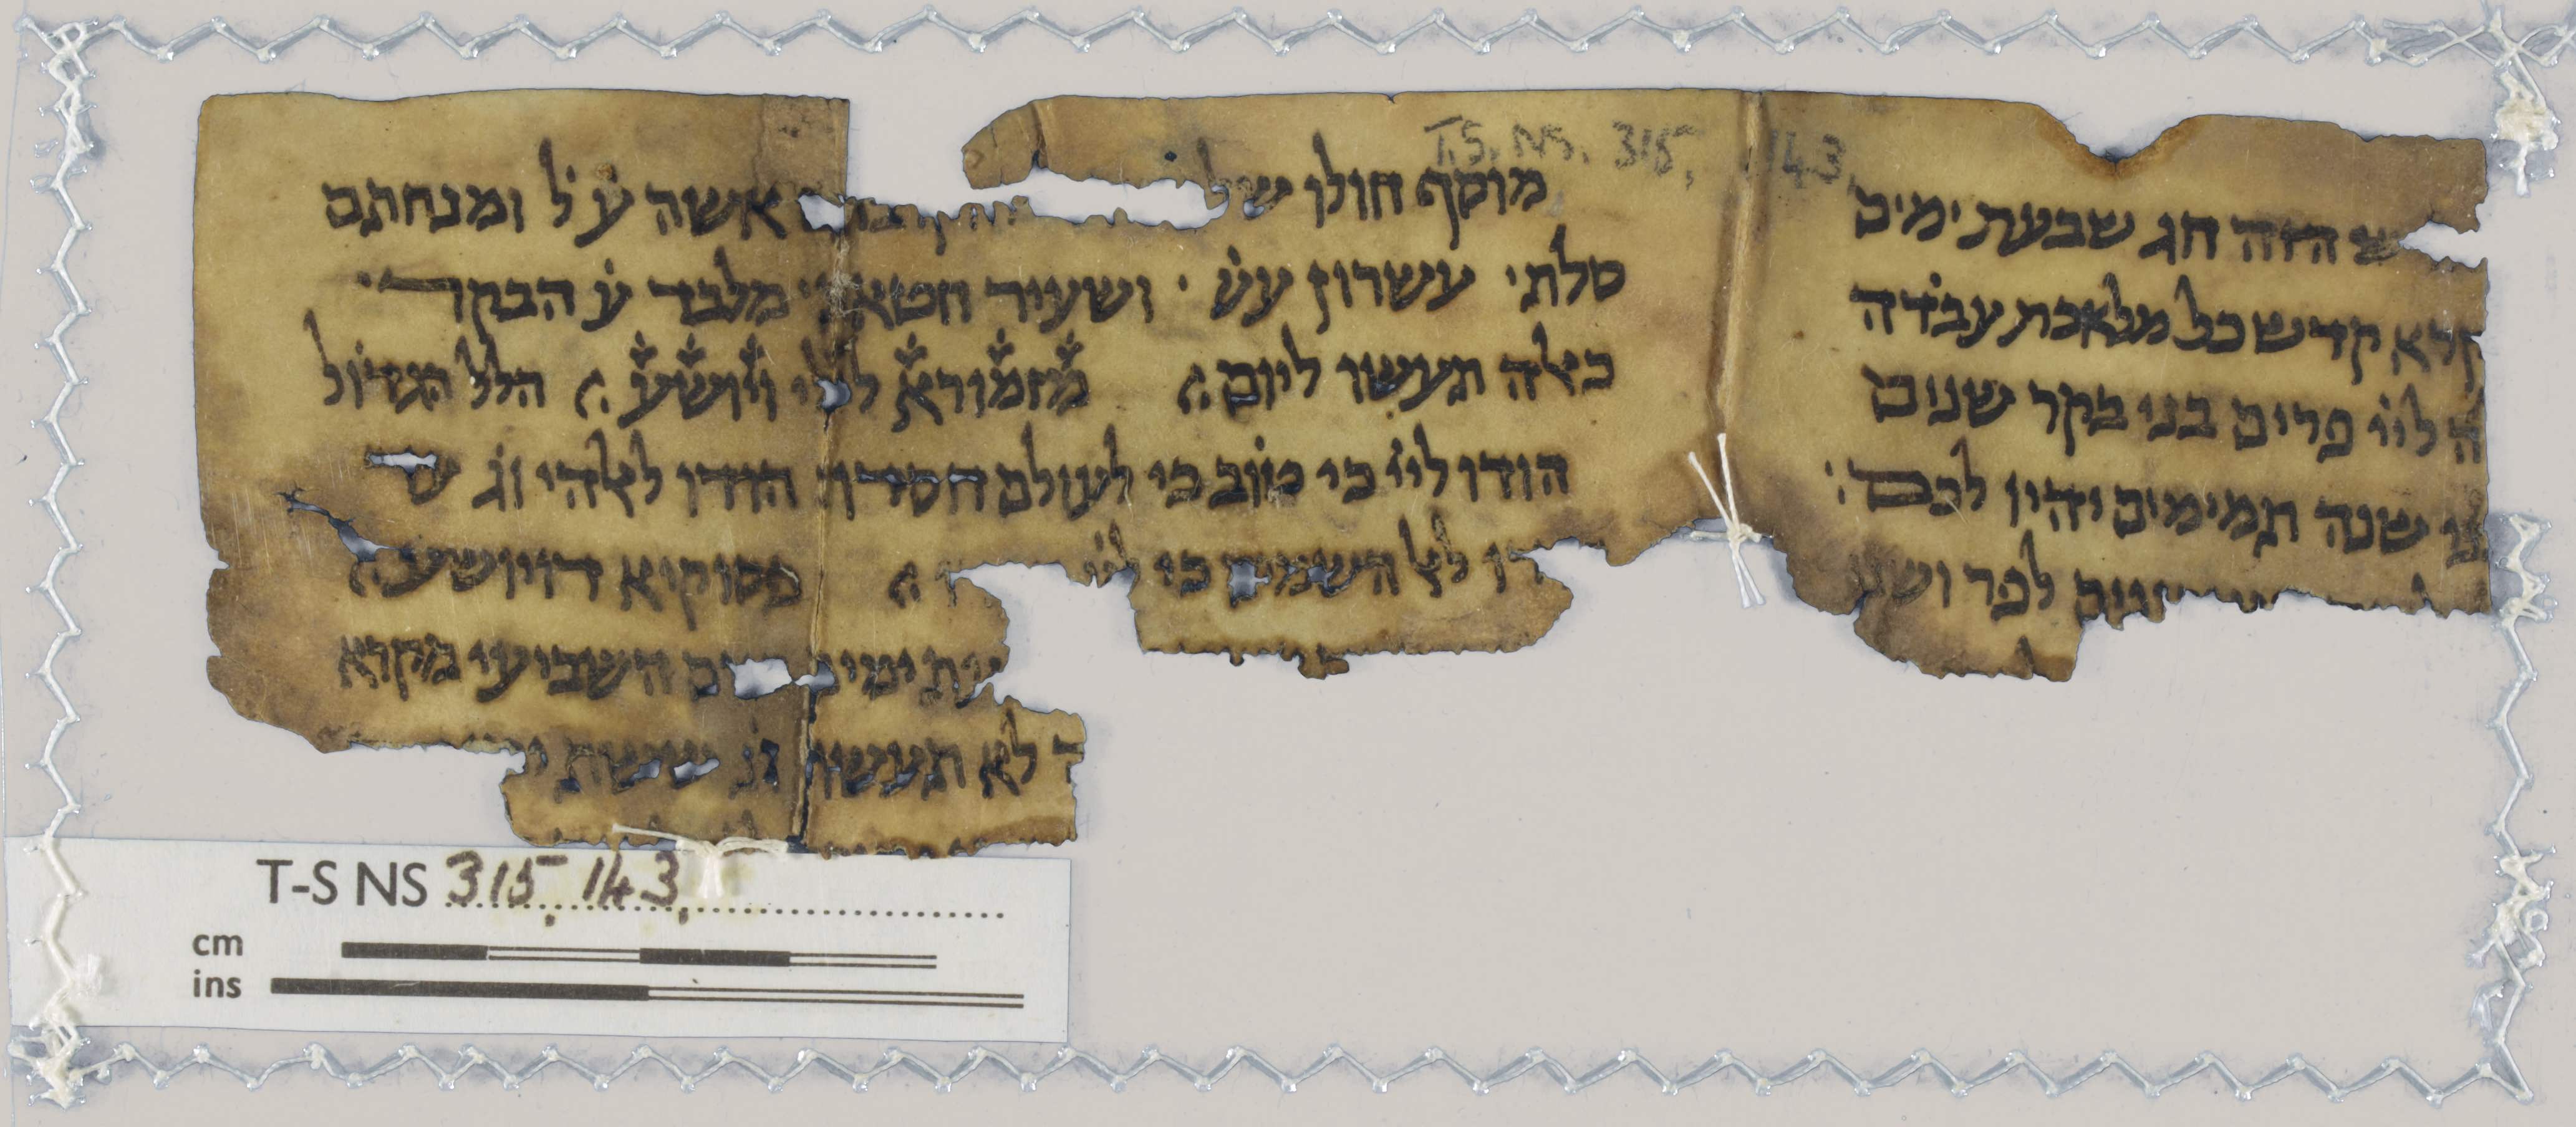 הזה חג שבעת ימים
קדש כל מלאכת עבדה
לייי פרים בני בקר שנים
שנה תמימים יהיו לכם
לפר
מוסף חולו אשה על ומנחתם
סלתי עשרון עש ושעיר חטאת מלבד ע הבקר
כאלה תעשו ליום מזמורא ויושע הלל הגדול
הודו לייי כי טוב כי לעולם חסדו הודו לאלהי וג
לאל השמים כי פסוקיא דויושע
ימים השביעי מקרא
לא תעשו וג ששת
T.S. NS. 315, 143
T-S NS 315, 143,
cm
ins